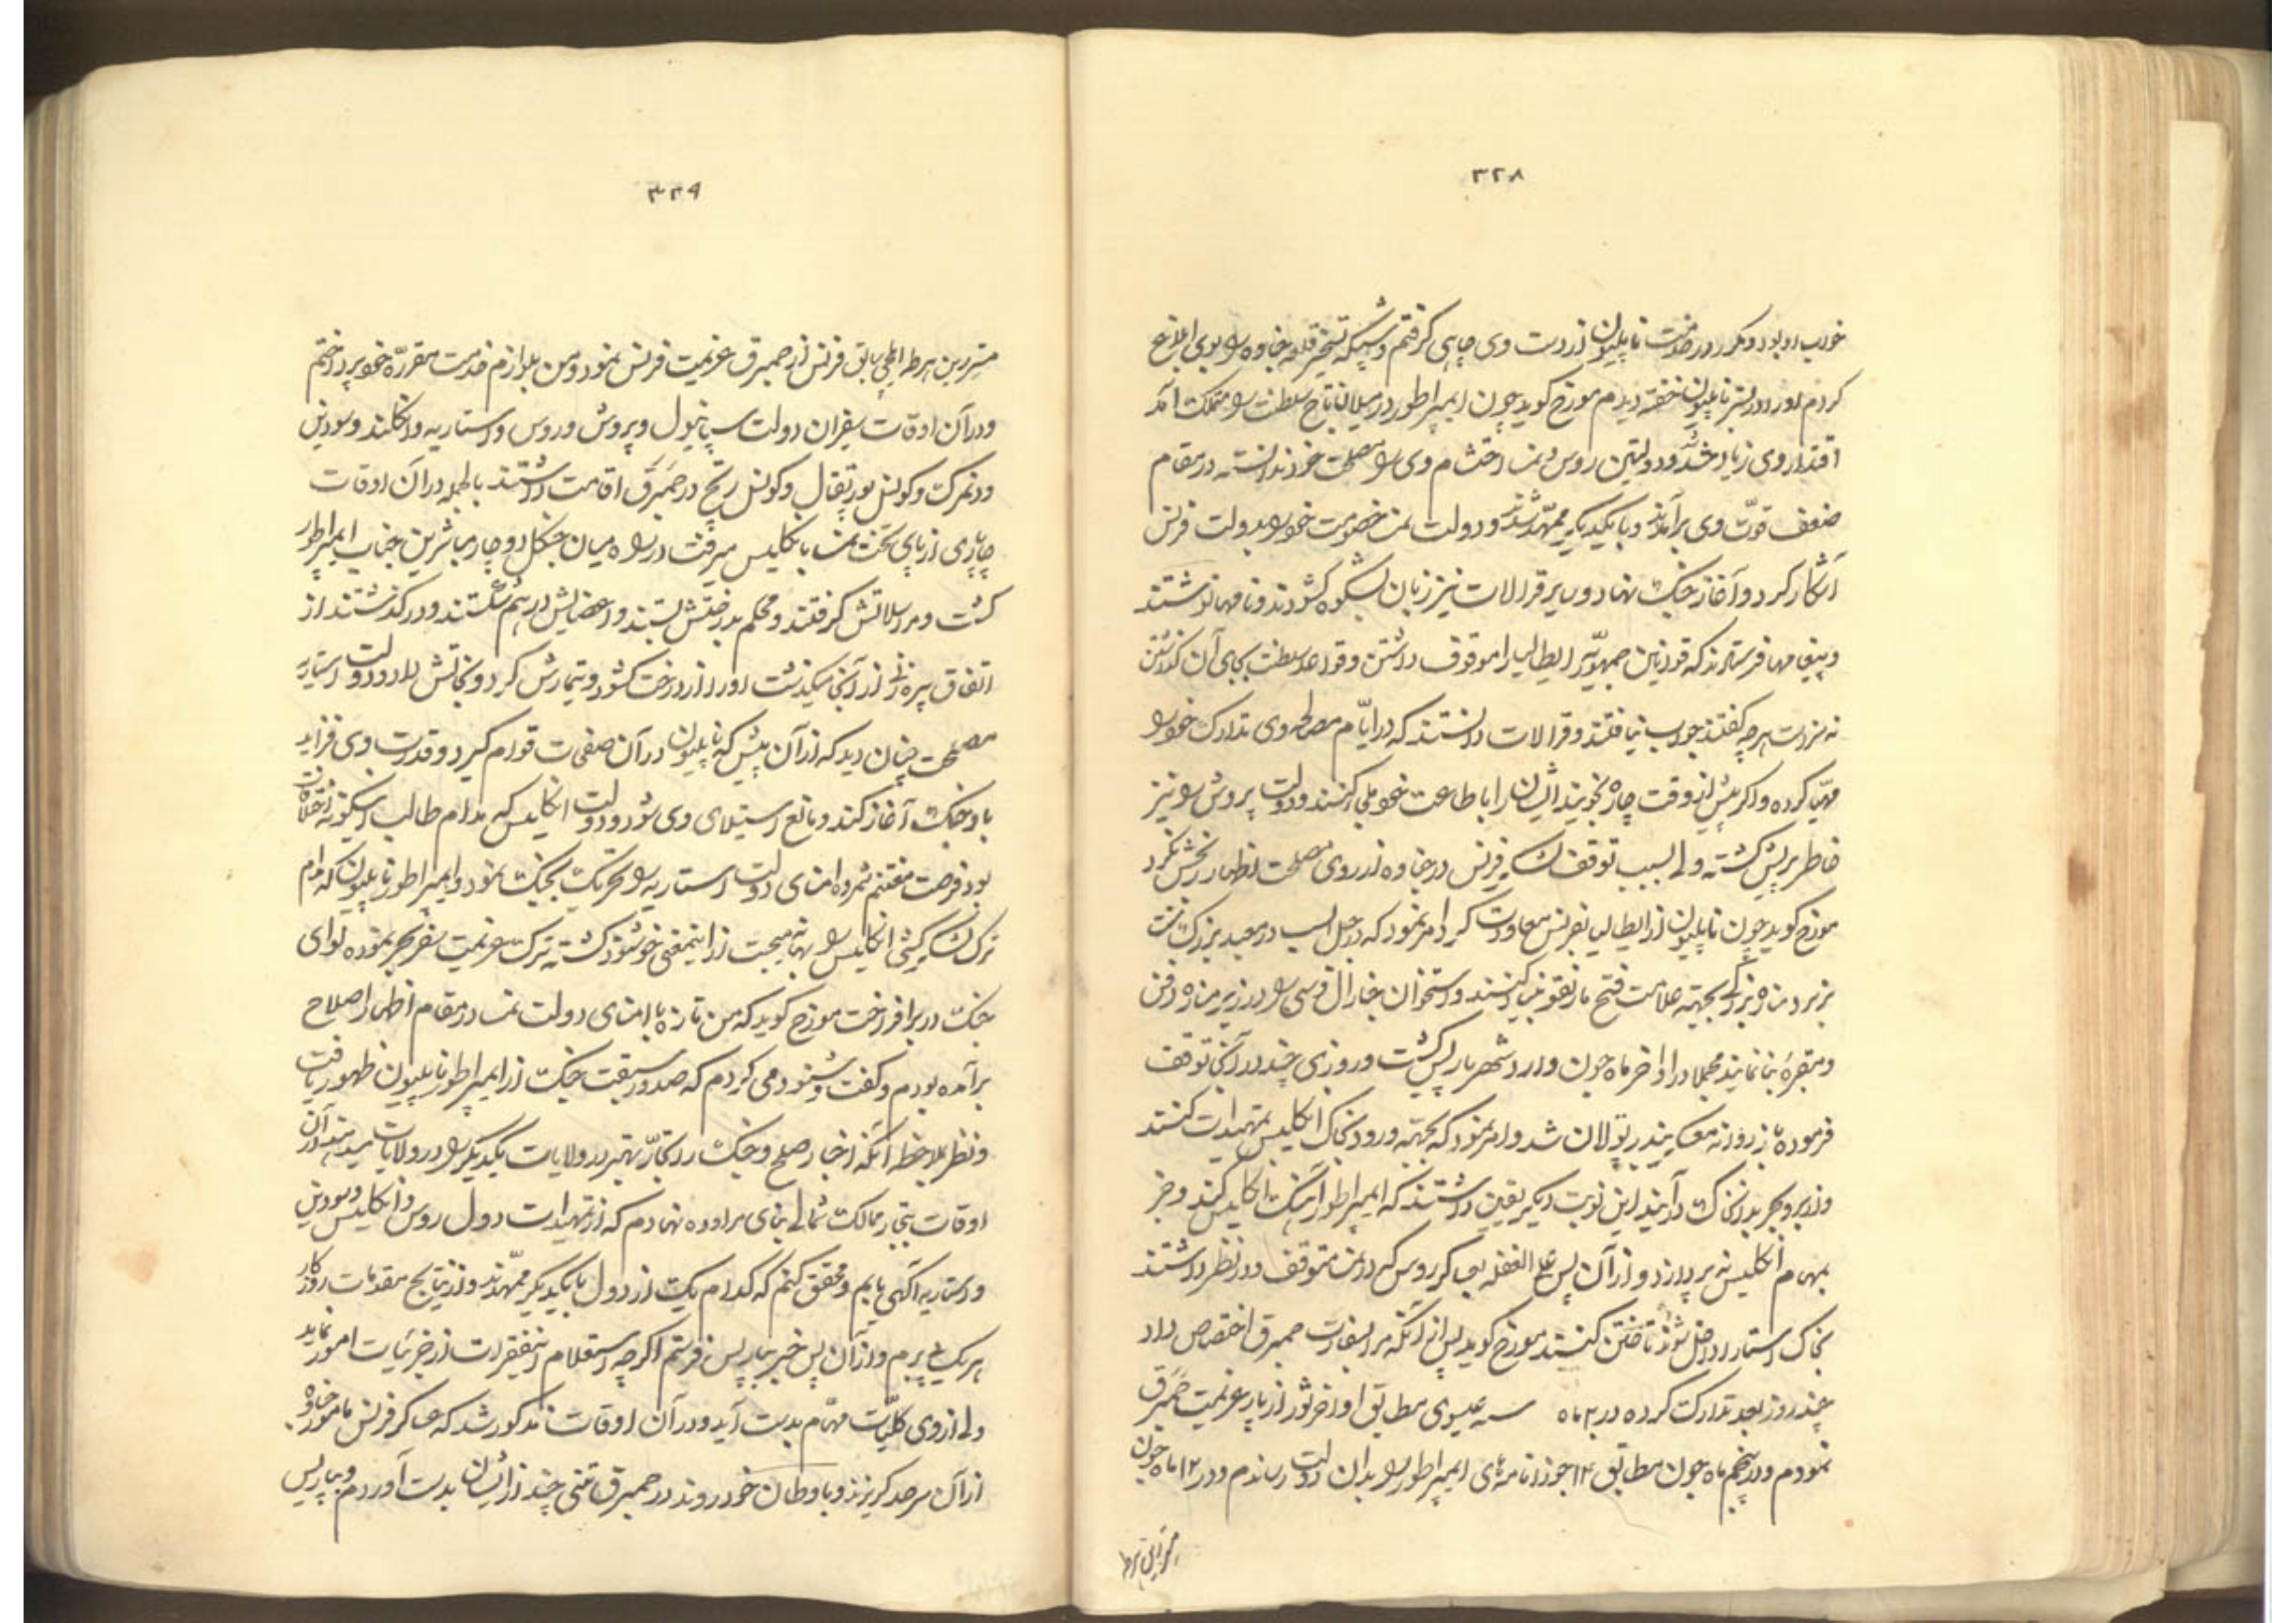 ۳۲۸
خواب او بود و مکرر در خدمت ناپلیون از دست وی چاهی گرفتم و شبیکه تسخیر قلعه خاوه را بوی ابلاغ
کردم او را در بستر ناپلیون خفته دیدم مورخ گوید چون ایمپراطور در میلان تاج سلطنت را متملک آمد
اقتدار وی زیاد شد و دولتین روس و نمسا احتشام وی را مصلحت خود ندانسته در مقام
ضعف قوت وی برآمدند و با یکدیگر ممهد شدند و دولت نمسا خصومت خود را بدولت فرنس
آشکار کرد و آغاز جنگ نهاد و سایر قرالات نیز زبان بشکوه گشودند و نامها نوشتند
و پیغامها فرستادند که قوانین جمهوریه ایطالیا را موقوف داشتن و قواعد سلطنت بجای آن گذاشتن
نه سزاست هرچه گفتند جواب نیافتند و قرالات دانستند که در ایام مصالحه وی تدارک خود را
مهیا کرده و اگر پیش از وقت چاره نجویند ایشان را باطاعت خود ملجا کنند و دولت پروش را نیز
خاطر پریش گشته ولی بسبب توقف لشکر فرنس در خاوه از روی مصلحت اظهار رنجش نکرد
مورخ گوید چون ناپلیون از ایطالیا بفرنس معاودت کرد امر نمود که در جبل السب در معبد بزرگ سنت
برنرد مناره بزرگ بجهته علامت فتح مارنغو بنا کنند و استخوان جنرال دسی را در زیر مناره دفن
و مقبره بنا نمایند مجملا در اواخر ماه جون وارد شهر پارس گشت و روزی چند در آنجا توقف
فرموده باز روانه معسکر بندر بولان شد و امر نمود که بجهته ورود بخاک انگلیس تمهیدات کنند
و از بر و بحر بدان خاک درآیند این نوبت دیگر یقین داشتند که ایمپراطور آهنگ انگلیس کند و جز
بمهام انگلیس نه پردازد و از آن پس علی الغفله با عساکر روس که در نمسا متوقف و در نظر داشتند
بخاک استاریا داخل شوند تاختن کنند مورخ گوید پس از آنکه مرا بسفارت همبرق اختصاص داد
چند روز بعد تدارک کرده در ۲ ماه سنه عیسوی مطابق اواخر ثور از پارس عزیمت همبرق
نمودم و در پنجم ماه جون مطابق ۱۴ جوزا نامه‌های ایمپراطور را بدان دولت رساندم و در ۱۲ ماه جون
مستر رین هرط
۳۲۹
مستر رین هرط ایلچی سابق فرنس از همبرق عزیمت فرنس نمود و من بلوازم خدمت مقرره خود پرداختم
و در آن اوقات سفیران دولت سپانیول و پروش و روس و استاریه و انگلند و سودین
و دنمرک و کونسل پورتقال و کونسل ریخ در همبرق اقامت داشتند بالجمله در آن اوقات
چاپاری از پای تخت نمسا بانگلیس میرفت در راه میان جنگل دوچار مباشرین جناب ایمپراطور
گشت و مراسلاتش گرفتند و محکم بدرختش بستند و اعضایش در هم شکستند و درگذشتند از
اتفاق پیره زنی از آنجا میگذشت او را از درخت گشود و تیمارش کرد و نجاتش داد و دولت استاریه
مصلحت چنان دید که از آن پیش که ناپلیون در آن صفحات قوام گیرد و قدرت وی فزاید
با او جنگ آغاز کند و مانع استیلای وی شود و دولت انگلیس که مدام طالب اینگونه اختلافات
بود فرصت مغتنم شمرده امنای دولت استاریه را تحریک بجنگ نمود و ایمپراطور ناپلیون که مدام
ترک لشکرکشی انگلیس را بهانه میجست از اینمعنی خوشنود گشته ترک عزیمت سفر بحر نموده لوای
جنگ در بر افراخت مورخ گوید که من تازه با امنای دولت نمسا در مقام اظهار اصلاح
برآمده بودم و گفت و شنود می کردم که صدور سبقت جنگ از ایمپراطور ناپلیون ظهور یافت
و نظر بملاحظه آنکه اخبار صلح و جنگ را تجار بهتر در ولایات یکدیگر را در ولایات میرسانند در آن
اوقات بتجار ممالک شمالی بنای مراوده نهادم که از تمهیدات دول روس و انگلیس و سودین
و استاریه آگهی یابم و محقق کنم که کدام یک از دول با یکدیگر ممهدند و از نتایج مقدمات روزگار
هریک پی برم و از آن پس خبر بپارس فرستم اگرچه استعلام اینفقرات از جزئیات امور نماید
ولی از وی کلیات مهام بدست آید و در آن اوقات مذکور شد که عساکر فرنس مامور خاوه
از آن سرحد گریزند و باوطان خود روند در همبرق تنی چند از ایشان بدست آوردم و بپارس